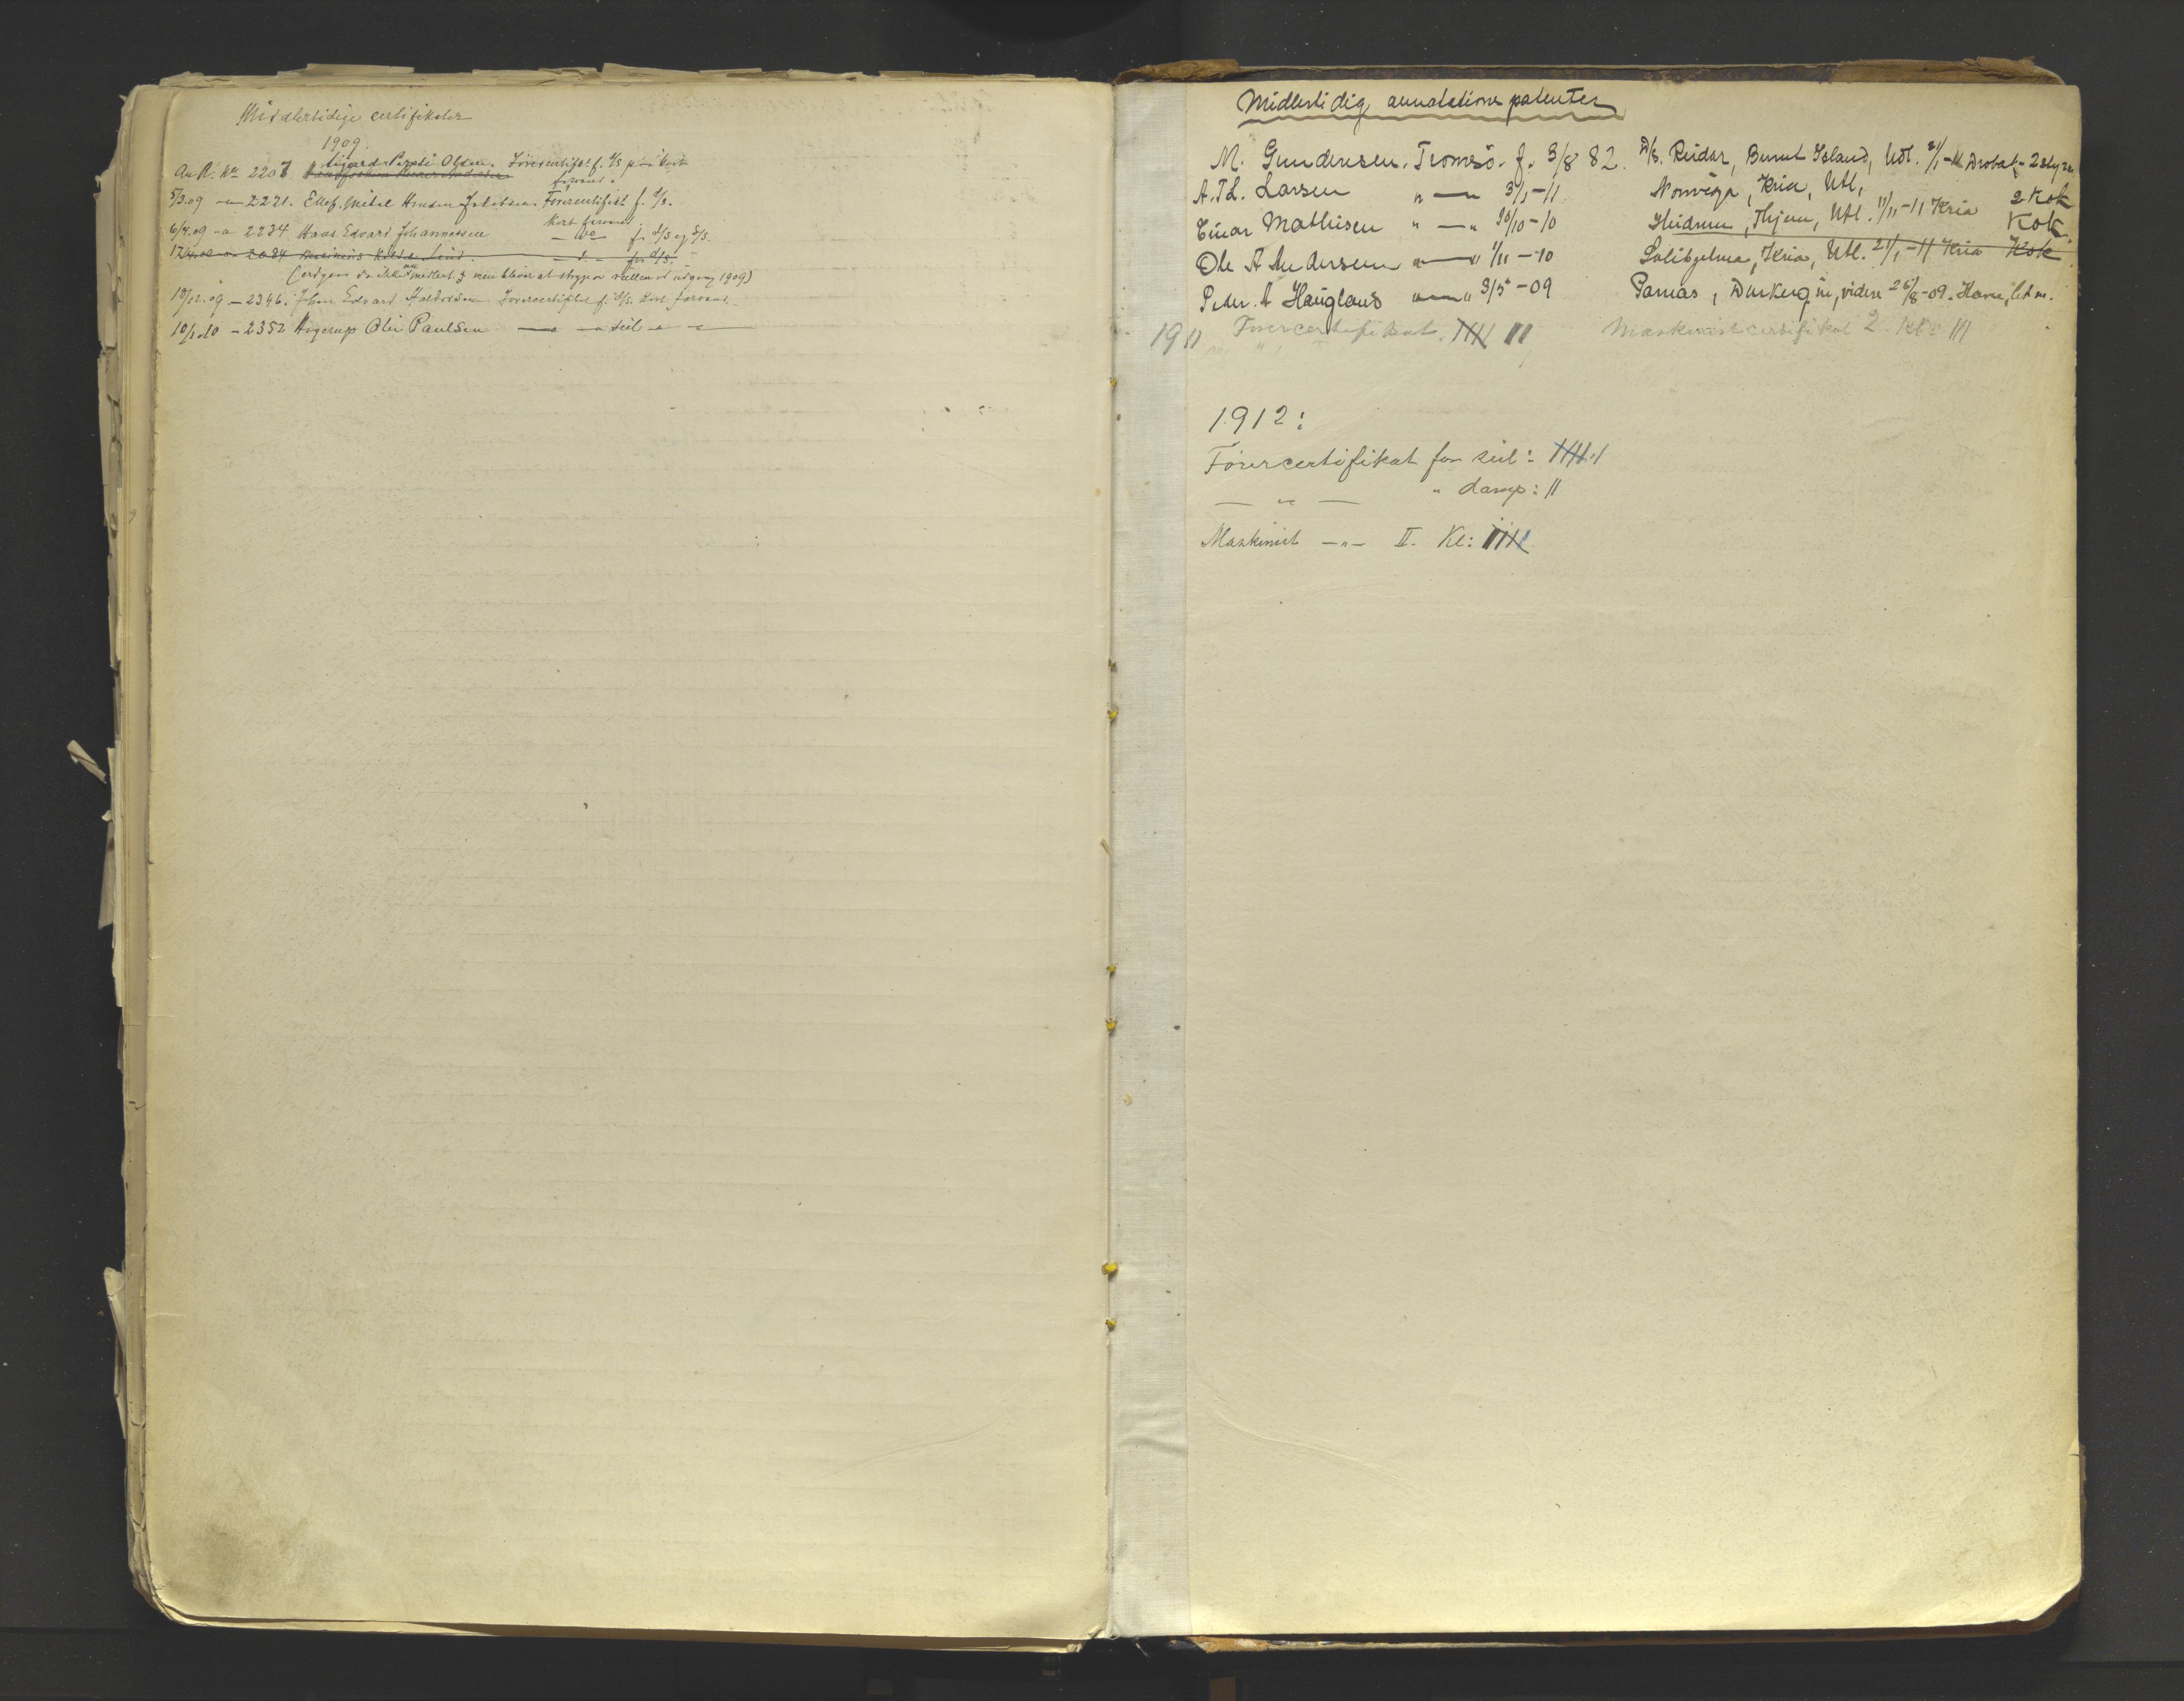 Midlertidige certifikater
1909.
An R. No 2207 Sigurd Olsen. Førercertifikat f. kort
farvand.
5/3.09 -"- 2221. Ellef. Mikal Hansen Jakobsen Førercertifikat f. d/s.
kort farvand.
6/4.09 -"- 2234 Hans Edvard Johannessen - Do - f. d/s og s/s
2084 - " - for d/s.
men bliver at stryge av rullen ved utgang 1909)
18/12.09 - 2346. Johan Edvard Halvorsen Førercertifikat f. d/s. Kort farvand.
10/1.10 - 2352 Aagerup Olei Paulsen — " — seil — " —
Midlertidig annotations patenter
M. Gundersen. Tromsö. f. 3/8 82. D/S. Reidar, Burnt Island, Utl. 2/1 - 11 Drobak - 2 sty
A. Th. Larsen " — " 3/1 - 11 Norvega, Kria, Utl. 2 Kok
Einar Mathisen " — " 30/10 - 10 Heidrun, Thjem, Utl. 11/11 - 11 Kria Kok.
Ole A Andersen " — " 1/11 - 10 Solibjelma, Kria, Utl. 21/1 - 11 Kria Kok
Peder. A Haugland " — " 3/5 - 09 Parnas, Dunkerq in, videre 25/8 - 09. Havre, let m.
1911 Förercertifikat. IIII II Maskinistcertifikat 2. kl. III
1912:
Förercertifikat for seil: IIII I
— " — " damp: II
Maskinist — " — II. Kl: IIII